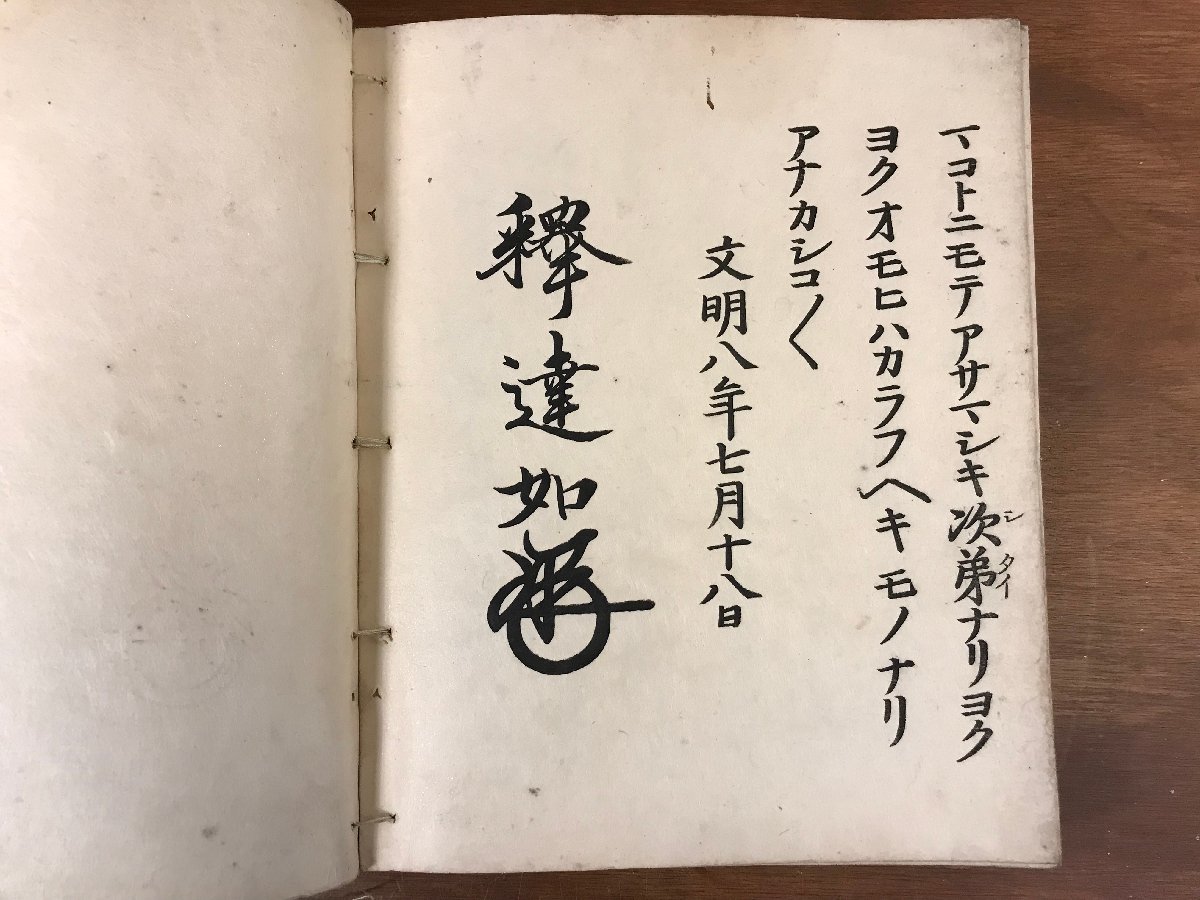 マコトニモテアサマシキ次弟ナリヨク
シタイ
ヨクオモヒハカラフヘキモノナリ
アナカシコ〳〵
文明八年七月十八日
釋達如